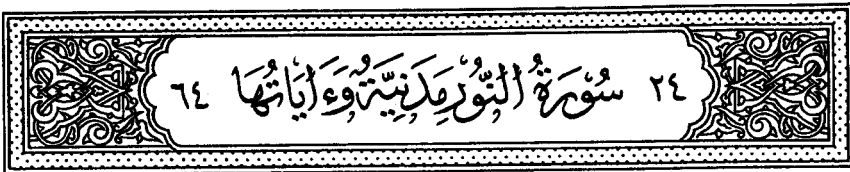 ٢٤ سُورَةُ النُّورِ مَدَنِيَّةٌ وَءَايَاتُهَا ٦٤